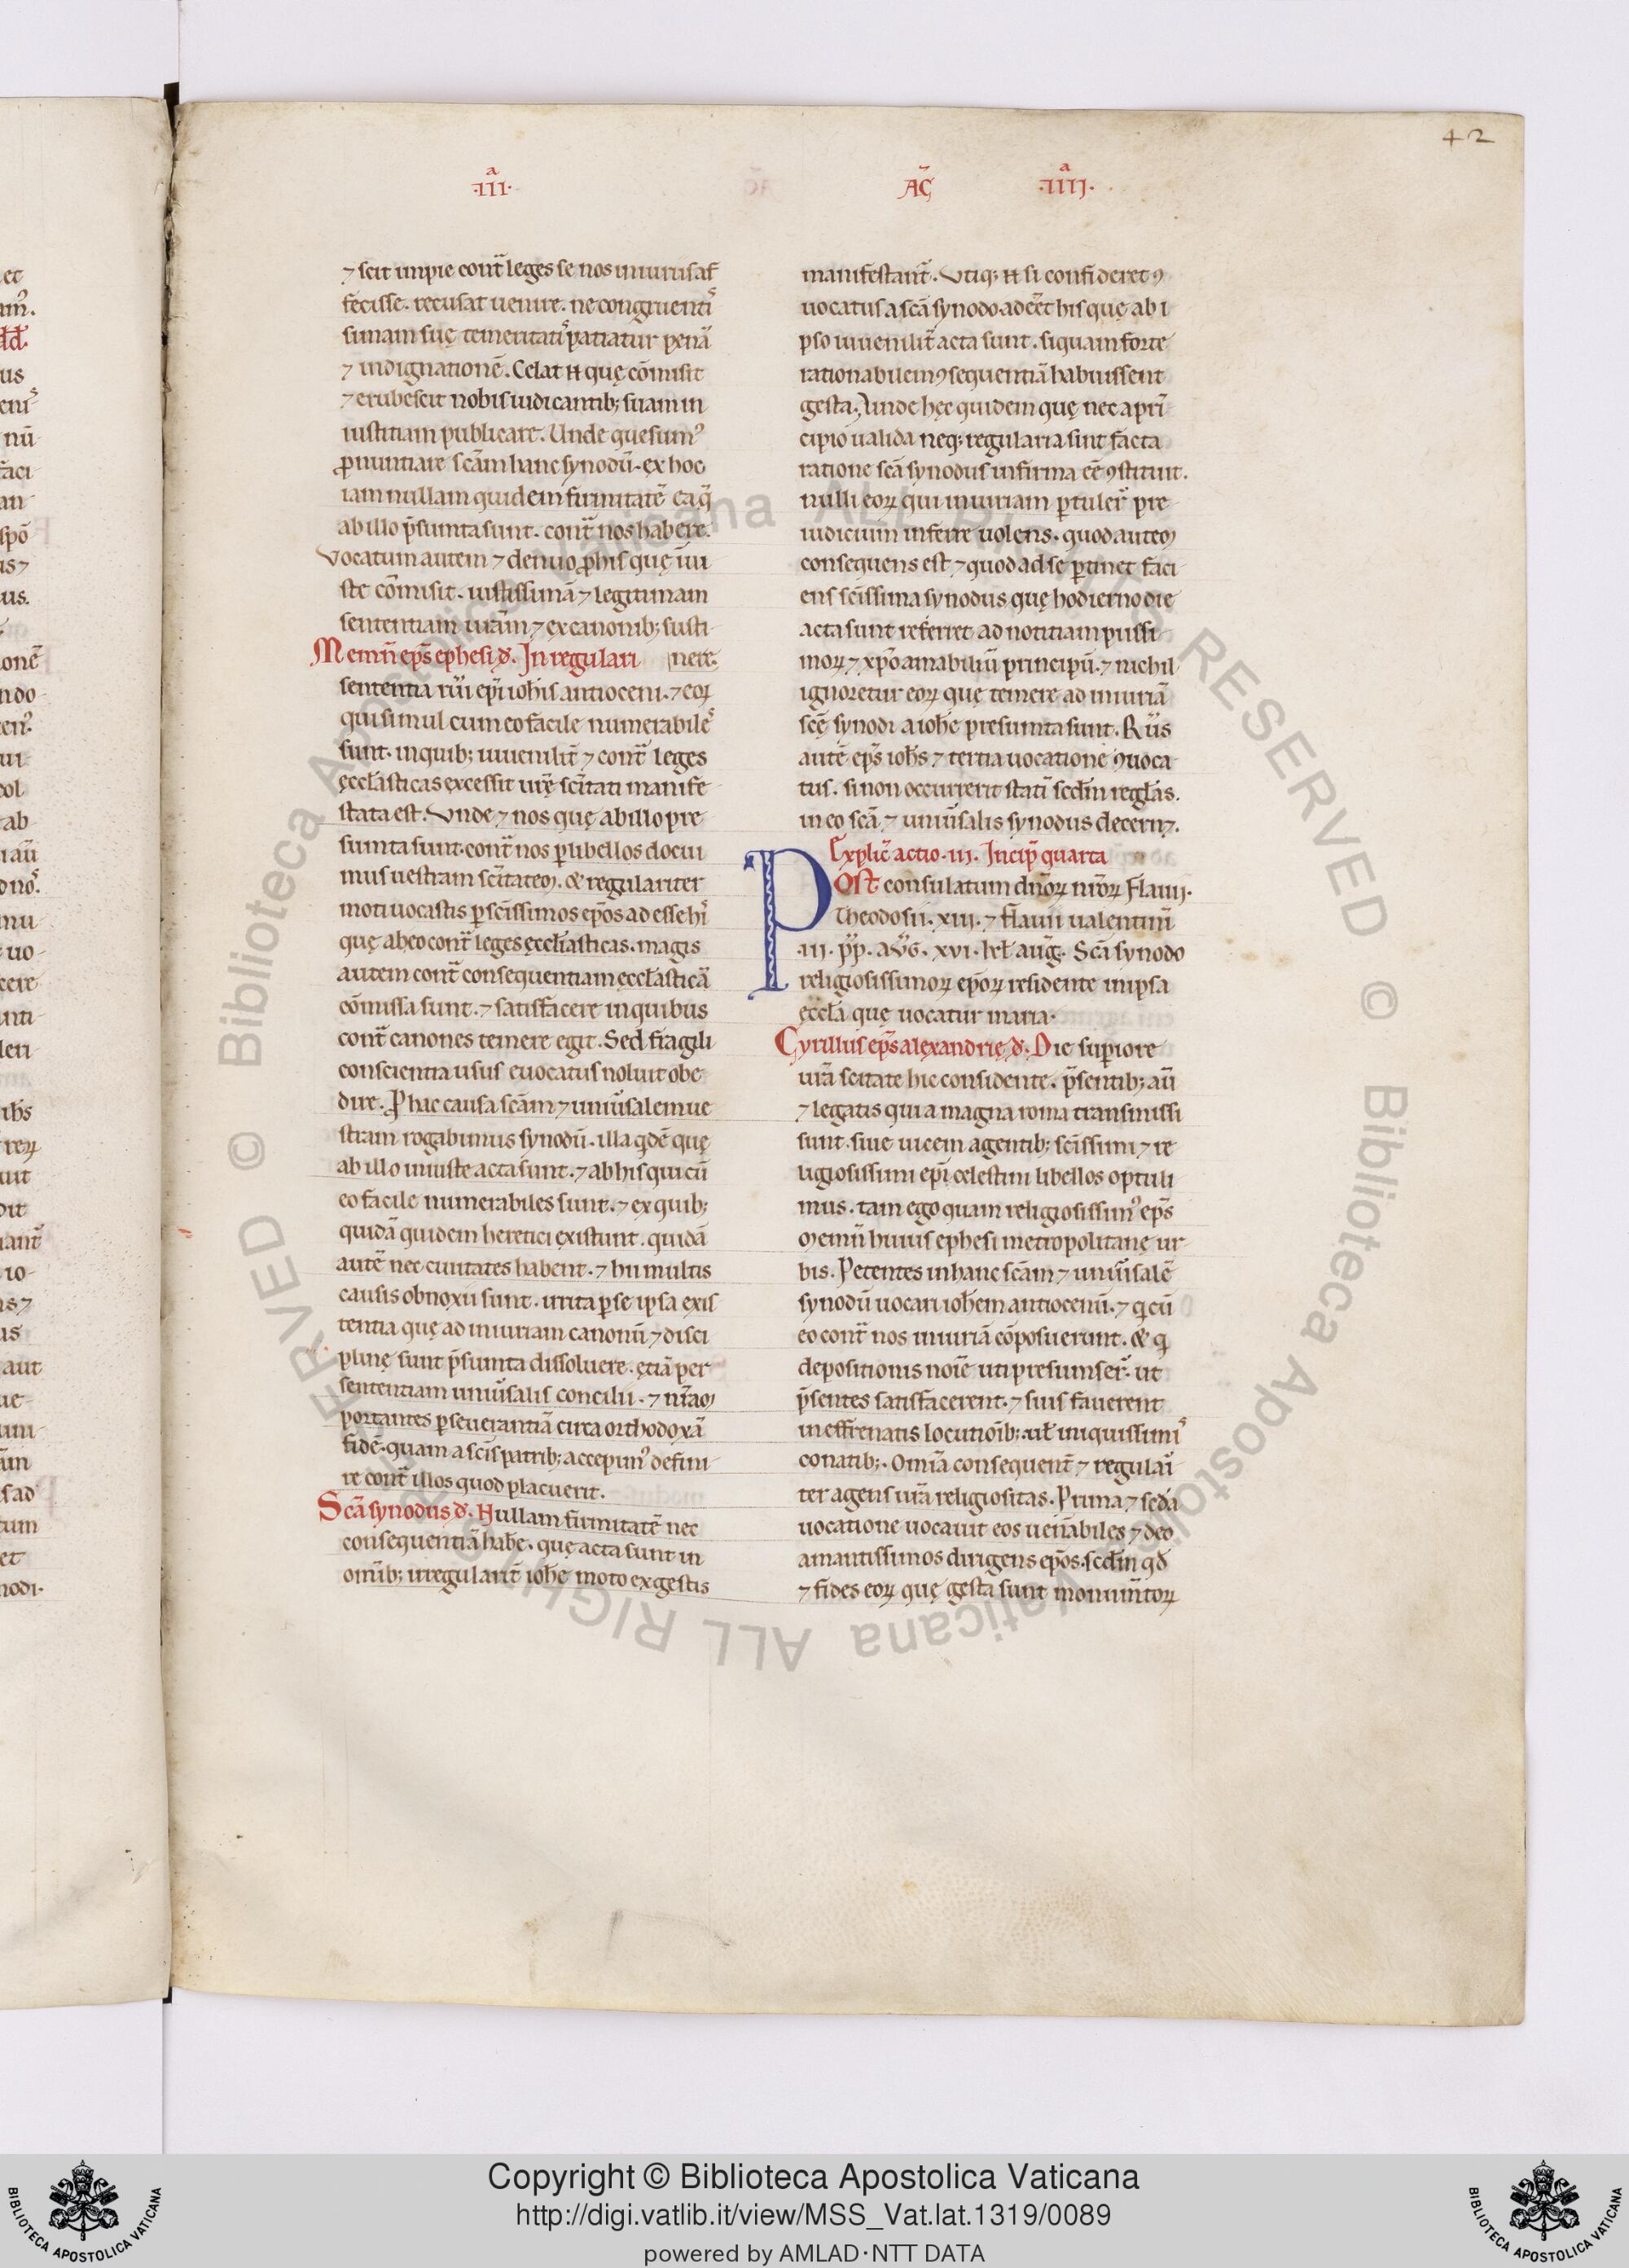 42
·III·ᵃ
AC̄
·IIIJ·ᵃ
⁊ scit impie cont̄ leges se nos iniurias af
fecisse. recusat uenire. ne congruenti
simam suę temeritatis patiatur penā
⁊ indignationē. Celat .n. quę cōmisit
⁊ erubescit nobis iudicantib; suam in
iustitiam publicare. Unde quesum⁹
ꝓnuntiare scām hanc synodū. ex hoc
iam nullam quidem firmitatē ea q̄
ab illo p̄sumta sunt. cont̄ nos habere.
Vocatum autem ⁊ denuo ꝓ his quę iniu
ste cōmisit. iustissimā ⁊ legitimam
sententiam urām ⁊ ex canonib; susti
Memn̄ ep̄s ephesi d. In regulari nere.
sententia rūi ep̄i ioh̄is antioceni. ⁊ eoꝝ
qui simul cum eo facile numerabiles
sunt. in quib; iuuenilit̄ ⁊ cont̄ leges
ęccl̄asticas excessit urę̄ sc̄itati manife
stata est. Vnde ⁊ nos quę ab illo pre
sumta sunt cont̄ nos ꝑ libellos docui
mus uestram sc̄itatem. & regulariter
moti uocastis ꝑ sc̄issimos ep̄os ad esse hi
quę ab eo cont̄ leges ęccl̄iasticas. magis
autem cont̄ consequentiam ęccl̄asticā
cōmissa sunt. ⁊ satisfacere in quibus
cont̄ canones temere egit. Sed fragili
conscientia usus euocatus noluit obe
dire. P hac causa scām ⁊ uniūsalem ue
stram rogabimus synodū. illa qidē quę
ab illo iniuste acta sunt. ⁊ ab his qui cū
eo facile numerabiles sunt. ⁊ ex quib;
quidā quidem heretici existunt. quidā
autē nec ciuitates habent. ⁊ hii multis
causis obnoxii sunt. irrita ꝑ se ipsa exis
tentia quę ad iniuriam canonū ⁊ disci
plinę sunt p̄sumta dissoluere. ętiā per
sententiam uniūsalis concilii. ⁊ nr̄am
portantes ꝑseuerantiā circa orthodoxā
fidē. quam a sc̄is patrib; accepim⁹ defini
re cont̄ illos quod placuerit.
Scā synodus d. Nullam firmitatē nec
consequentiā habe. quę acta sunt in
omīb; irregularit̄ ioh̄e moto ex gestis
manifestant̄. Vtiq; .n. si confideret ꝯ
uocatus a scā synodo. adeēt his quę ab i
pso iuuenilit̄ acta sunt. si quam forte
rationabilem ꝯsequentiā habuissent
gesta. Vnde hęc quidem quę nec a prin
cipio ualida neq; regularia sint facta
ratione scā synodus infirma eē ꝯstituit.
nulli eoꝝ qui iniuriam ꝑtuler̄ pre
iudicium inferre uolens. quod autem
consequens est ⁊ quod ad se ꝑtinet faci
ens sc̄issima synodus quę hodierno die
acta sunt referret ad notitiam piissi
moꝝ ⁊ xp̄o amabiliū principū. ⁊ nichil
ignoretur eoꝝ quę temere ad iniuriā
scę̄ synodi a ioh̄e presumta sunt. Rūs
autē ep̄s ioh̄s ⁊ tertia uocatione ꝯuoca
tus. si non occurrerit statī sc̄dm regl̄as.
in eo scā ⁊ uniūsalis synodus decern⁊.
Explic̄ actio. iij. Incip̄ quarta
POst consulatum dn̄oꝝ nr̄oꝝ Flauij.
Theodosii. xiij. ⁊ flauii ualentini
.iij. pp̄. aūG. xvi. kl̄ aug. Scā synodo
religiosissimoꝝ ep̄oꝝ residente in ipsa
ęccl̄a quę uocatur maria.
Cyrillus ep̄s alęxandrię d. Die suꝑiore
urā scitate hic considente. p̄sentib; aū
⁊ legatis qui a magna roma transmissi
sunt. siue uicem agentib; sc̄issimi ⁊ re
ligiosissimi ep̄i celestini libellos optuli
mus. tam ego quam religiosissim⁹ ep̄s
memn̄ huius ephesi metropolitanę ur
bis. Petentes in hanc scām ⁊ uniūsalē
synodū uocari ioh̄em antiocenū. ⁊ qi cū
eo cont̄ nos iniuriā cōposuerunt. & qi
depositionis noīe uti presumser̄. ut
p̄sentes satisfacerent. ⁊ suis fauerent
in effrenatis locutioīb;. ul̄ iniquissimis
conatib;. Omīa consequent̄ ⁊ regulari
ter agens urā religiositas. Prima ⁊ sc̄da
uocatione uocauit eos uen̄abiles ⁊ deo
amantissimos dirigens ep̄os. sc̄dm qd
⁊ fides eoꝝ quę gesta sunt monimn̄toꝝ
Copyright © Biblioteca Apostolica Vaticana
http://digi.vatlib.it/view/MSS_Vat.lat.1319/0089
powered by AMLAD·NTT DATA
BIBLIOTECA APOSTOLICA VATICANA
BIBLIOTECA APOSTOLICA VATICANA
© Biblioteca Apostolica Vaticana ALL RIGHTS RESERVED © Biblioteca Apostolica Vaticana ALL RIGHTS RESERVED